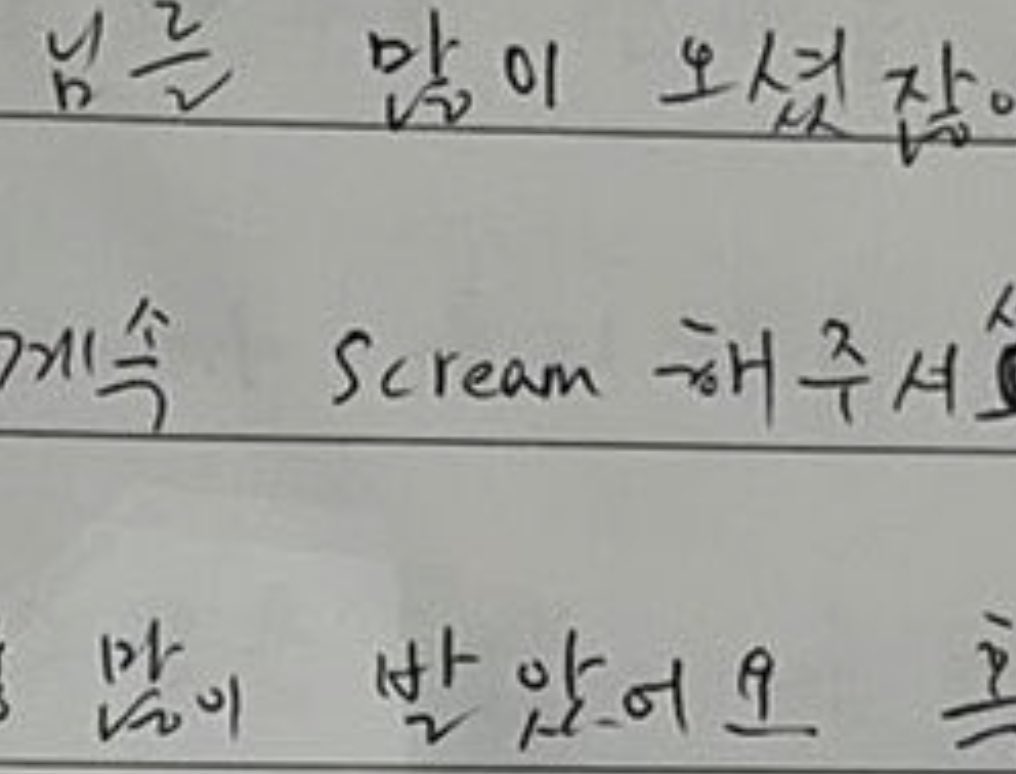 님을 많이 오셨잖
계속 Scream 해주셔
많이 발았어요